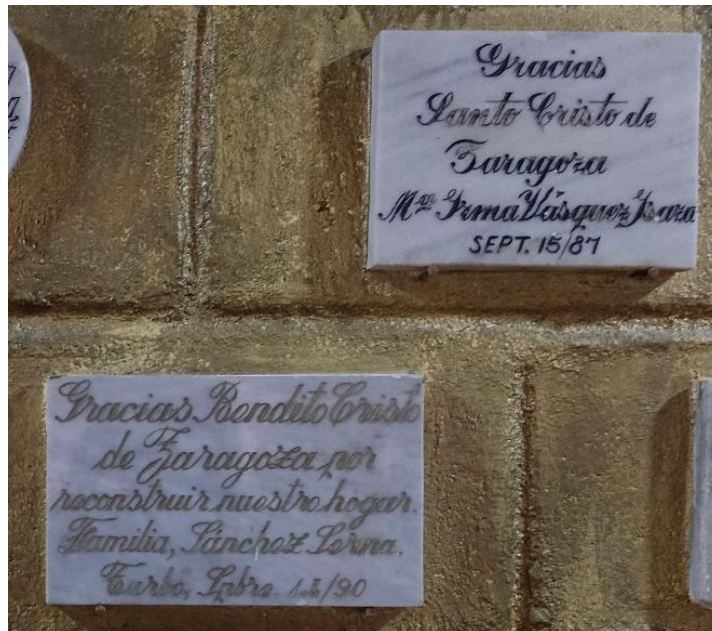 Gracias
Santo Cristo de
Zaragoza
Mª Irma Vásquez Isaza
SEPT. 15/87
Gracias Bendito Cristo
de Zaragoza por
reconstruir nuestro hogar.
Familia, Sánchez Serna.
Turbo, Spbre. /90